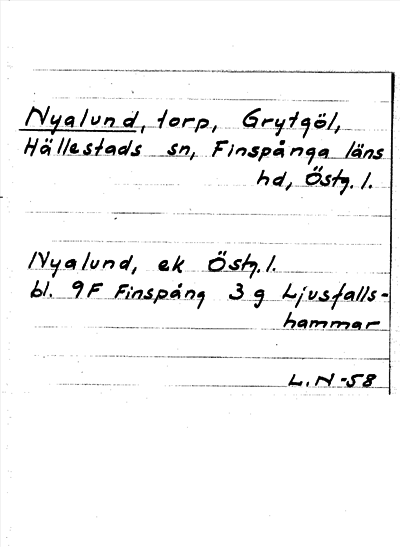 Nyalund, torp, Grytgöl,
Hällestads sn, Finspånga läns
hd, Östg. l.
Nyalund, ek Östg. l.
bl. 9F Finspång 3 g Ljusfalls-
hammar
L. N -58